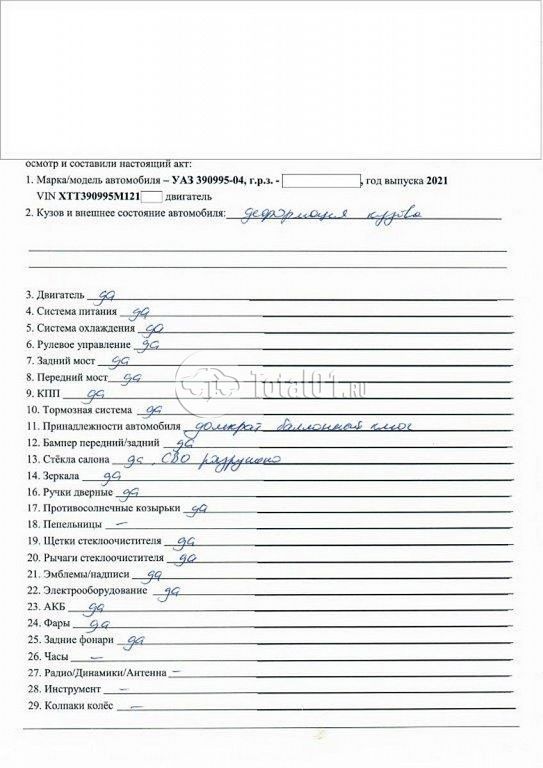 осмотр и составили настоящий акт:
1. Марка/модель автомобиля – УАЗ 390995-04, г.р.з. - , год выпуска 2021
VIN XTT390995M121 двигатель
2. Кузов и внешнее состояние автомобиля: деформация кузова
3. Двигатель да
4. Система питания да
5. Система охлаждения да
6. Рулевое управление да
7. Задний мост да
8. Передний мост да
Total01.RU
9. КПП да
10. Тормозная система да
11. Принадлежности автомобиля домкрат баллонный ключ
12. Бампер передний/задний да
13. Стёкла салона да, СВО разрушено
14. Зеркала да
16. Ручки дверные да
17. Противосолнечные козырьки да
18. Пепельницы –
19. Щетки стеклоочистителя да
20. Рычаги стеклоочистителя да
21. Эмблемы/надписи да
22. Электрооборудование да
23. АКБ да
24. Фары да
25. Задние фонари да
26. Часы –
27. Радио/Динамики/Антенна –
28. Инструмент –
29. Колпаки колёс –